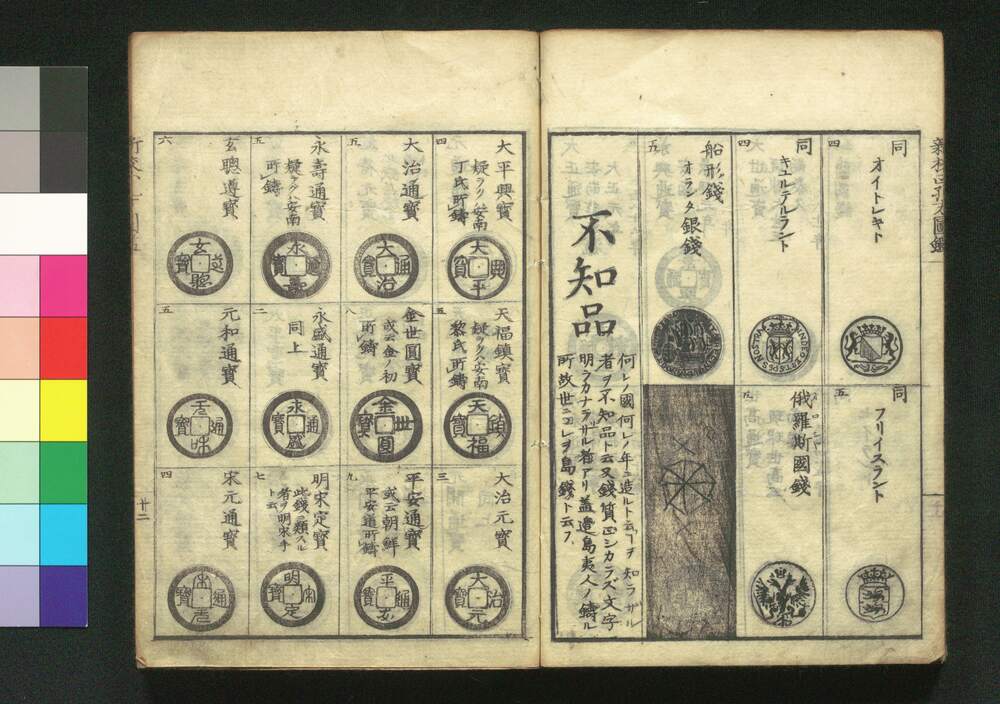 同
オイトレキト
四
同
フリイスラント
五
同
キエルテルラント
四
俄羅斯國錢
九
船形錢
オランタ銀錢
五
不知品
何レノ國何レノ年ニ造ルト云フヲ知ラザル
者ヲ不知品ト云又錢質正シカラズ文字
明ラカナラザル者アリ蓋邊島夷人ノ鑄ル
所故世ニコレヲ島錢ト云フ
大平興寳
疑ラクハ安南
丁氏所鑄
四
大興平寳
天福鎮寳
疑ラクハ安南
黎氏所鑄
五
天鎮福寳
大治元寳
三
大治元寳
大治通寳
五
大通治寳
金世圓寳
或云金ノ初
所鑄
八
金世圓寳
平安通寳
或云朝鮮
平安道所鑄
九
平通安寳
永壽通寳
疑ラクハ安南
所鑄
五
永通壽寳
永盛通寳
同上
二
永通盛寳
明宋定寳
此錢ニ類スル
者ヲ明宋手
ト云
七
明宋定寳
玄聰遵寳
六
玄遵聰寳
元和通寳
五
元通和寳
宋元通寳
四
宋通元寳
廿二